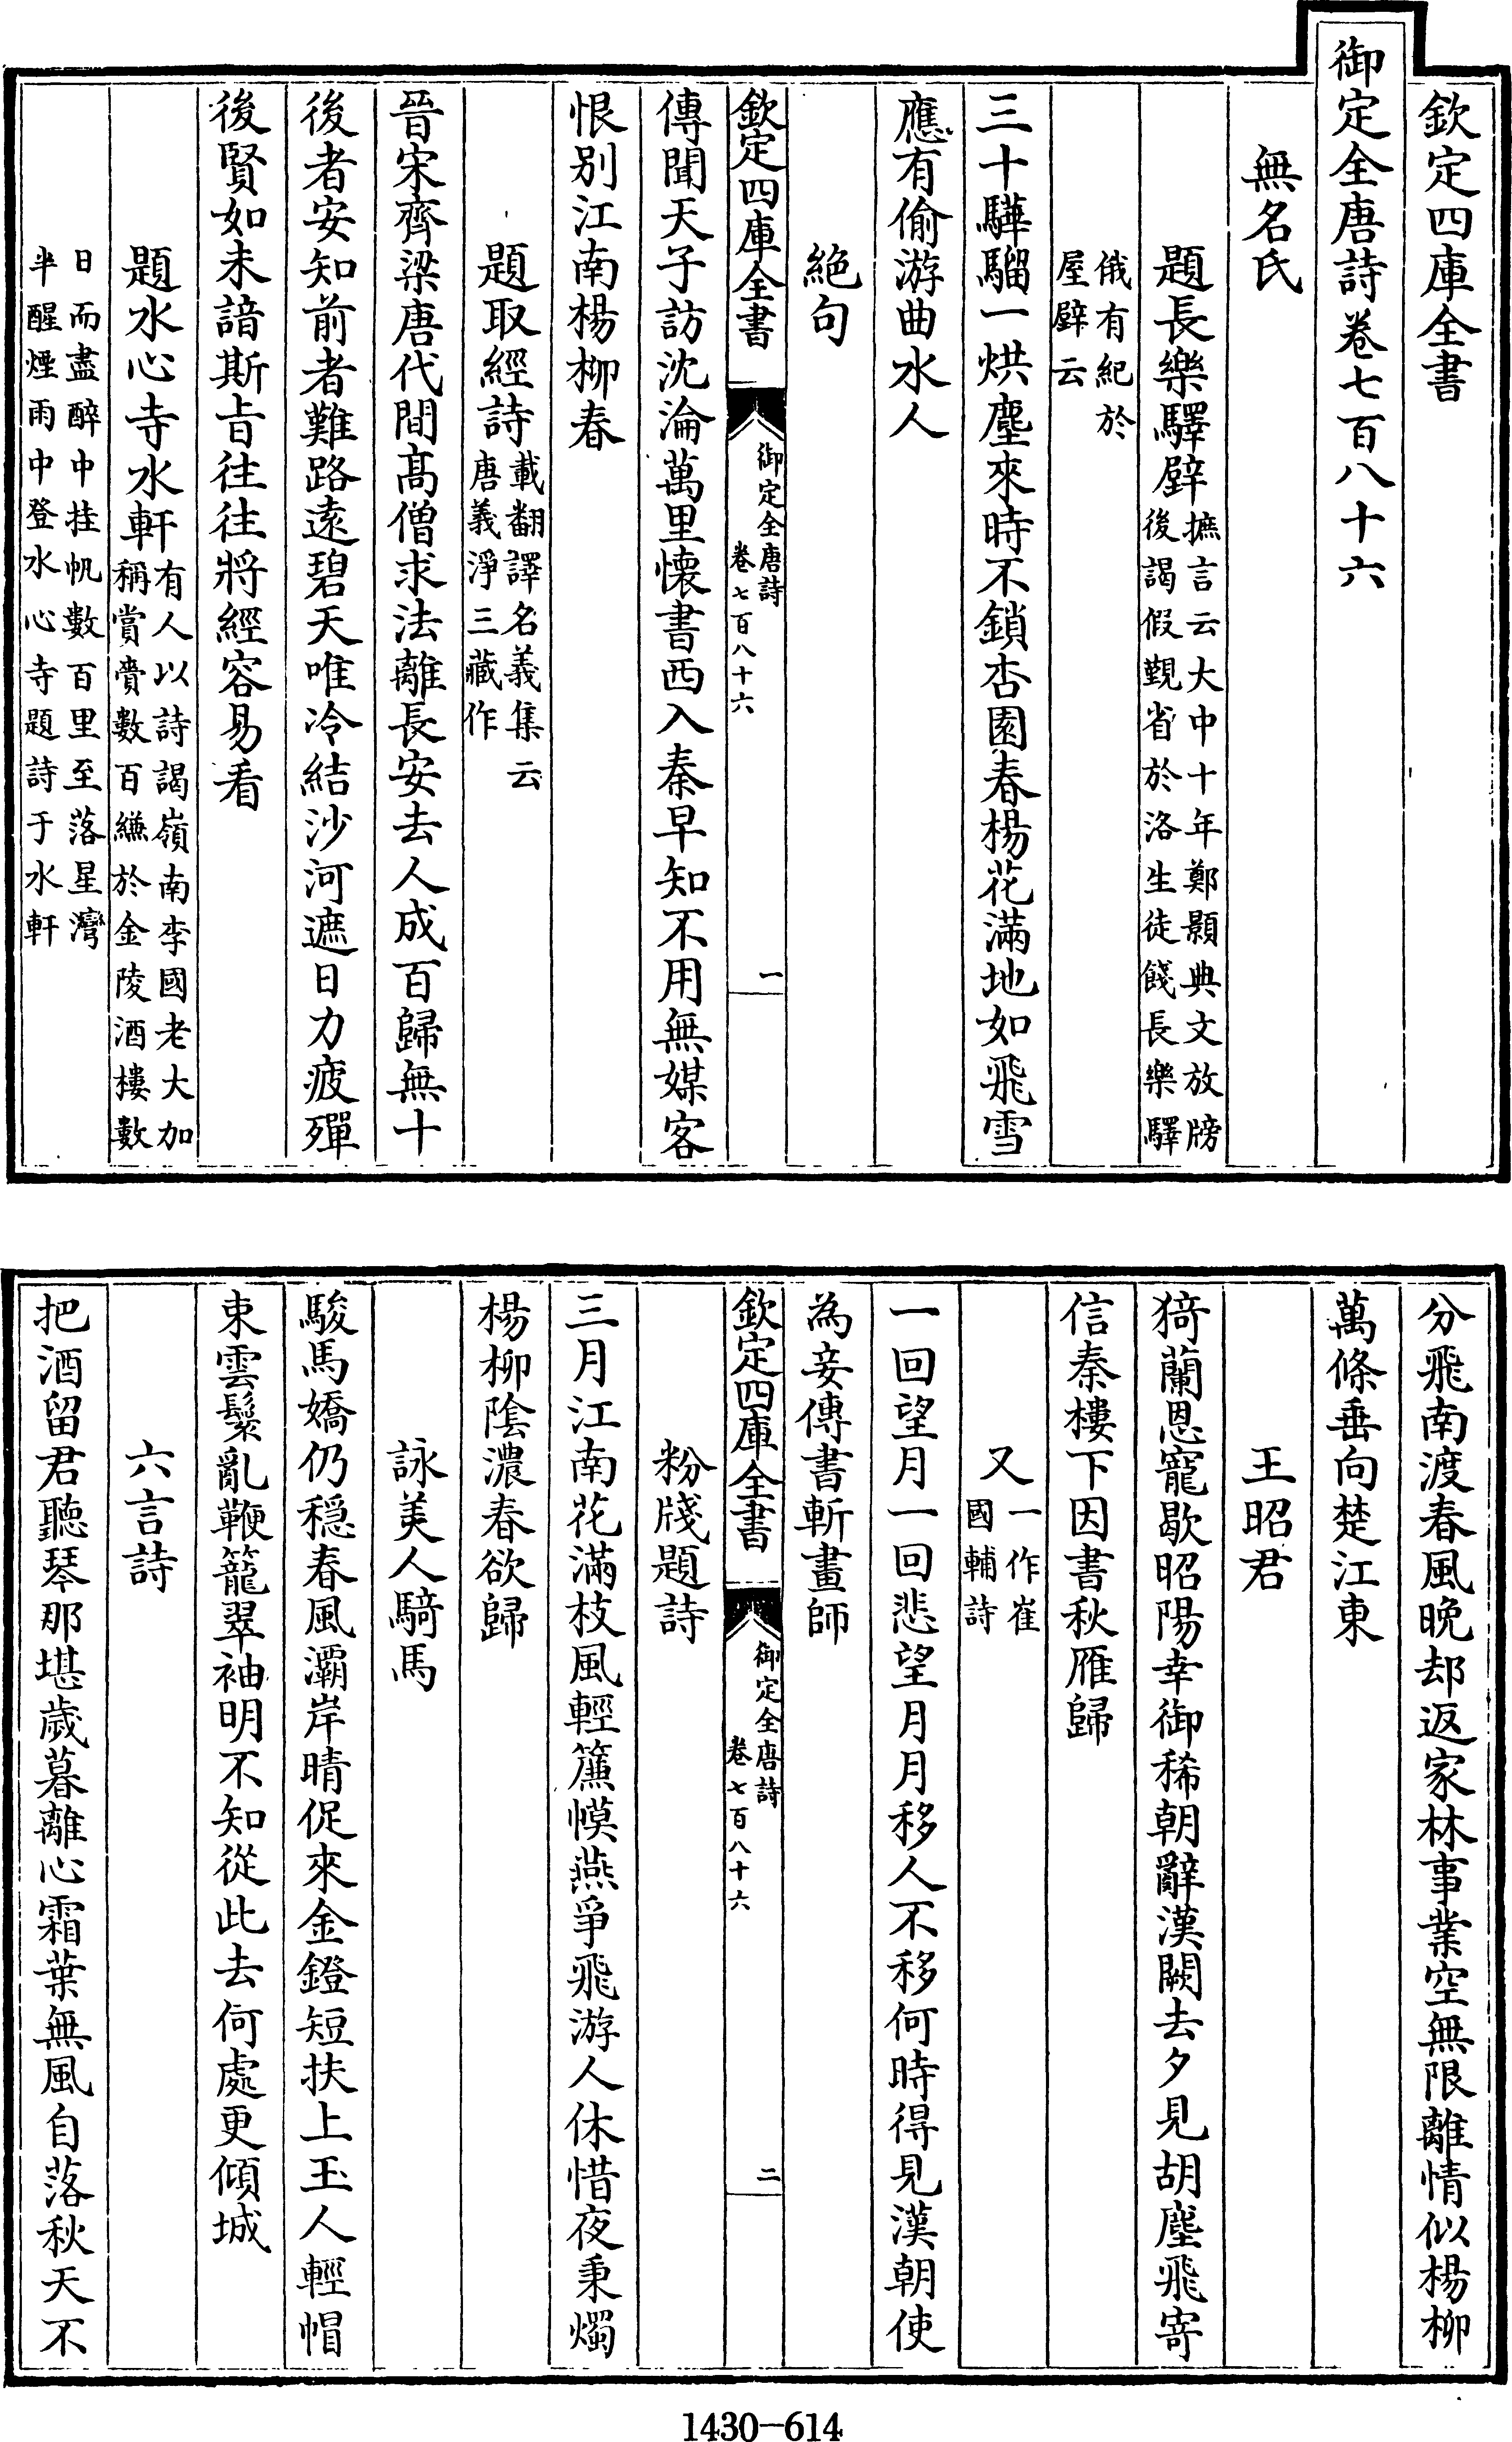 欽定四庫全書
御定全唐詩卷七百八十六
無名氏
題長樂驛壁摭言云大中十年鄭顥典文放牓
後謁假覲省於洛生徒餞長樂驛
俄有紀於
屋壁云
三十驊騮一烘塵來時不鎖杏園春楊花滿地如飛雪
應有偷游曲水人
絕句
欽定四庫全書
御定全唐詩
卷七百八十六
一
傳聞天子訪沈淪萬里懷書西入秦早知不用無媒客
恨别江南楊柳春
題取經詩載翻譯名義集云
唐義淨三藏作
晉宋齊梁唐代間髙僧求法離長安去人成百歸無十
後者安知前者難路遠碧天唯冷結沙河遮日力疲殫
後賢如未諳斯㫖往往將經容易看
題水心寺水軒有人以詩謁嶺南李國老大加
稱賞賷數百縑於金陵酒樓數
日而盡醉中挂帆數百里至落星灣
半醒煙雨中登水心寺題詩于水軒
分飛南渡春風晚却返家林事業空無限離情似楊柳
萬條垂向楚江東
王昭君
猗蘭恩寵歇昭陽幸御稀朝辭漢闕去夕見胡塵飛寄
信秦樓下因書秋雁歸
又一作崔
國輔詩
一回望月一回悲望月月移人不移何時得見漢朝使
為妾傳書斬畫師
欽定四庫全書
御定全唐詩
卷七百八十六
二
粉牋題詩
三月江南花滿枝風輕簾幙燕爭飛游人休惜夜秉燭
楊柳陰濃春欲歸
詠美人騎馬
駿馬嬌仍穏春風灞岸晴促來金鐙短扶上玉人輕帽
束雲鬟亂鞭籠翠袖明不知從此去何處更傾城
六言詩
把酒留君聽琴那堪歲暮離心霜葉無風自落秋天不
1430-614